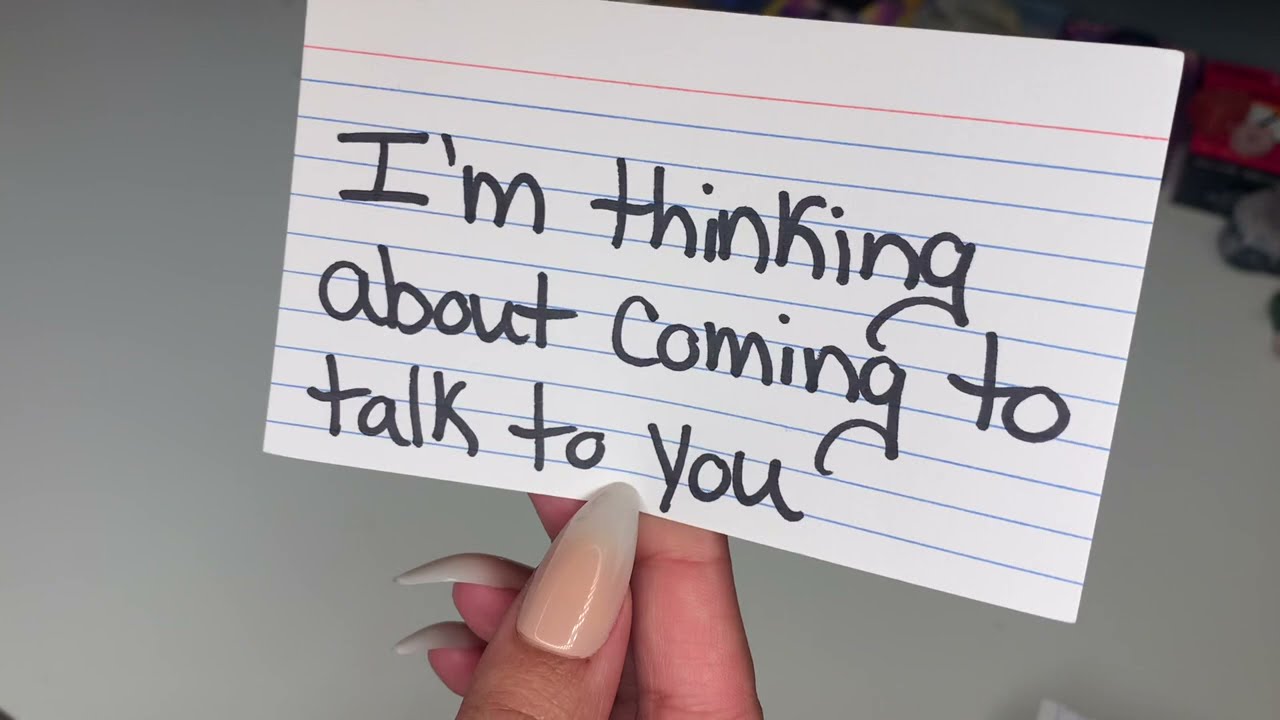 I'm thinking
about coming to
talk to you